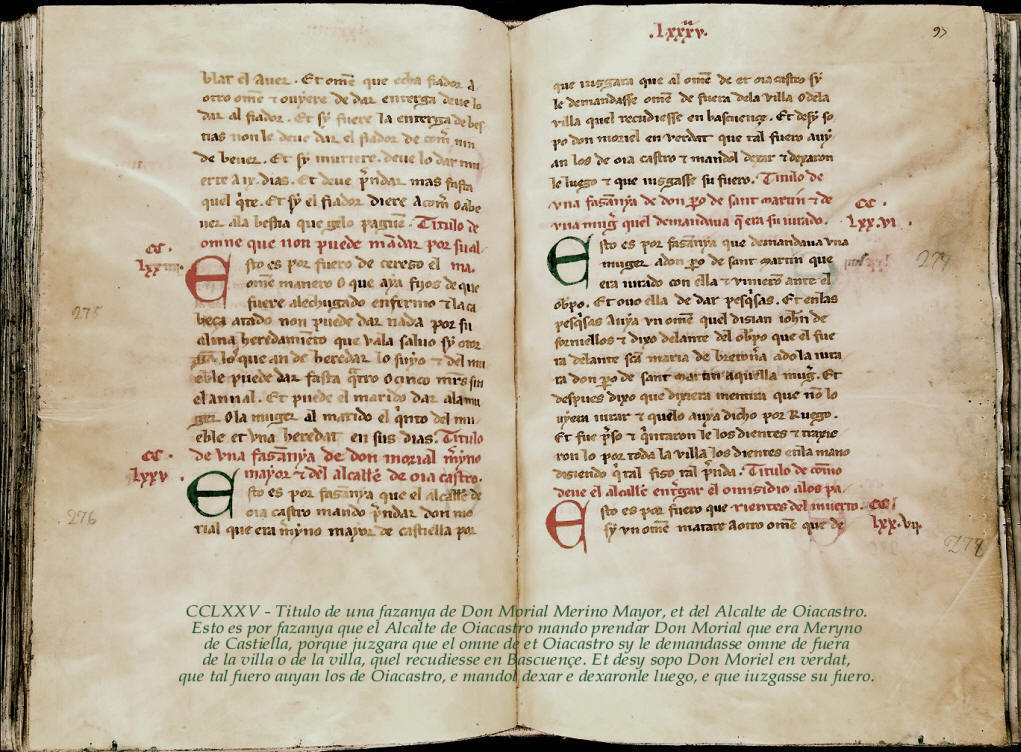 .lxxxv.
97
blar el Auer. Et omẽ que echa fiador A
otro omẽ τ ouyere de dar enterga deue lo
dar al fiador. Et sy fuere la enterga de bes
tias non le deue dar el fiador de com̃ nin
de beuer. Et sy muriere deue lo dar mu
erte A ix. dias. Et deve p̃ndar mas fasta
quel q̃te. Et sy el fiador diere A com̃ O a be
uer ala bestia que gelo paguẽ. Titulo de
omne que non puede mãdar por su al
ma.
CC.
Esto es por fuero de cerego el
omẽ manero O que aya fijos de que
fuere alechugado enfermo τ la ca
beça atado non puede dar nada por su
alma heredamiẽto que vala saluo sy otor
gã lo que an de heredar lo suyo τ del mu
eble puede dar fasta q̃tro O cinco mr̃s sin
el annal. Et puede el marido dar ala mu
ger O la muger al marido el q̃nto del mu
eble et vna heredat en sus dias. Titulo
de vna fasãnya de don morial m̃yno
mayor τ del alcallẽ de oia castro.
CC.
lxxv.
Esto es por fasãnya que el alcallẽ de
oia castro mando p̃ndar don mo
rial que era m̃yno mayor de castiella por
275
276
que iusgara que al omẽ de et oia castro sy
le demandasse omẽ de fuera dela villa O dela
villa quel recudiesse en bascuençe. Et desy so
po don moriel en verdat que tal fuero auy
an los de oia castro τ mandol dexar τ dexaron
le luego τ que iusgasse su fuero. Titulo de
vna fasãnya de don p̃o de sant martin τ de
vna mug̃ quel demandaua q̃ era su iurado.
CC.
lxx.vi.
Esto es por fasãnya que demandaua vna
muger a don p̃o de sant martin que
era iurado con ella τ vinierõ ante el
obp̃o. Et ouo ella de dar pesq̃sas. Et en las
pesq̃sas Auya vn omẽ quel disian ioh̃n de
forniellos τ dixo delante del ob̃po que el fue
ra delante sc̃a maria de bretoñ̃a ado la iura
ra don p̃o de sant martin aquella mug̃. Et
despues dixo que dixiera mentira que nõ lo
uyera iurar τ quelo auya dicho por Ruego.
Et fue p̃so τ q̃ntaron le los dientes τ traxie
ron lo por toda la villa los dientes en la mano
disiendo q̃ tal fiso tal p̃nda. Titulo de cõmo
deue el alcallẽ ent̃gar el omisidio alos pa
rientes del muerto.
CC.
lxx.vii.
Esto es por fuero que
sy vn omẽ matare a otro omẽ que de
277
278
CCLXXV - Titulo de una fazanya de Don Morial Merino Mayor, et del Alcalte de Oiacastro.
Esto es por fazanya que el Alcalte de Oiacastro mando prendar Don Morial que era Meryno
de Castiella, porque juzgara que el omne de et Oiacastro sy le demandasse omne de fuera
de la villa o de la villa, quel recudiesse en Bascuençe. Et desy sopo Don Moriel en verdat,
que tal fuero auyan los de Oiacastro, e mandol dexar e dexaronle luego, e que iuzgasse su fuero.